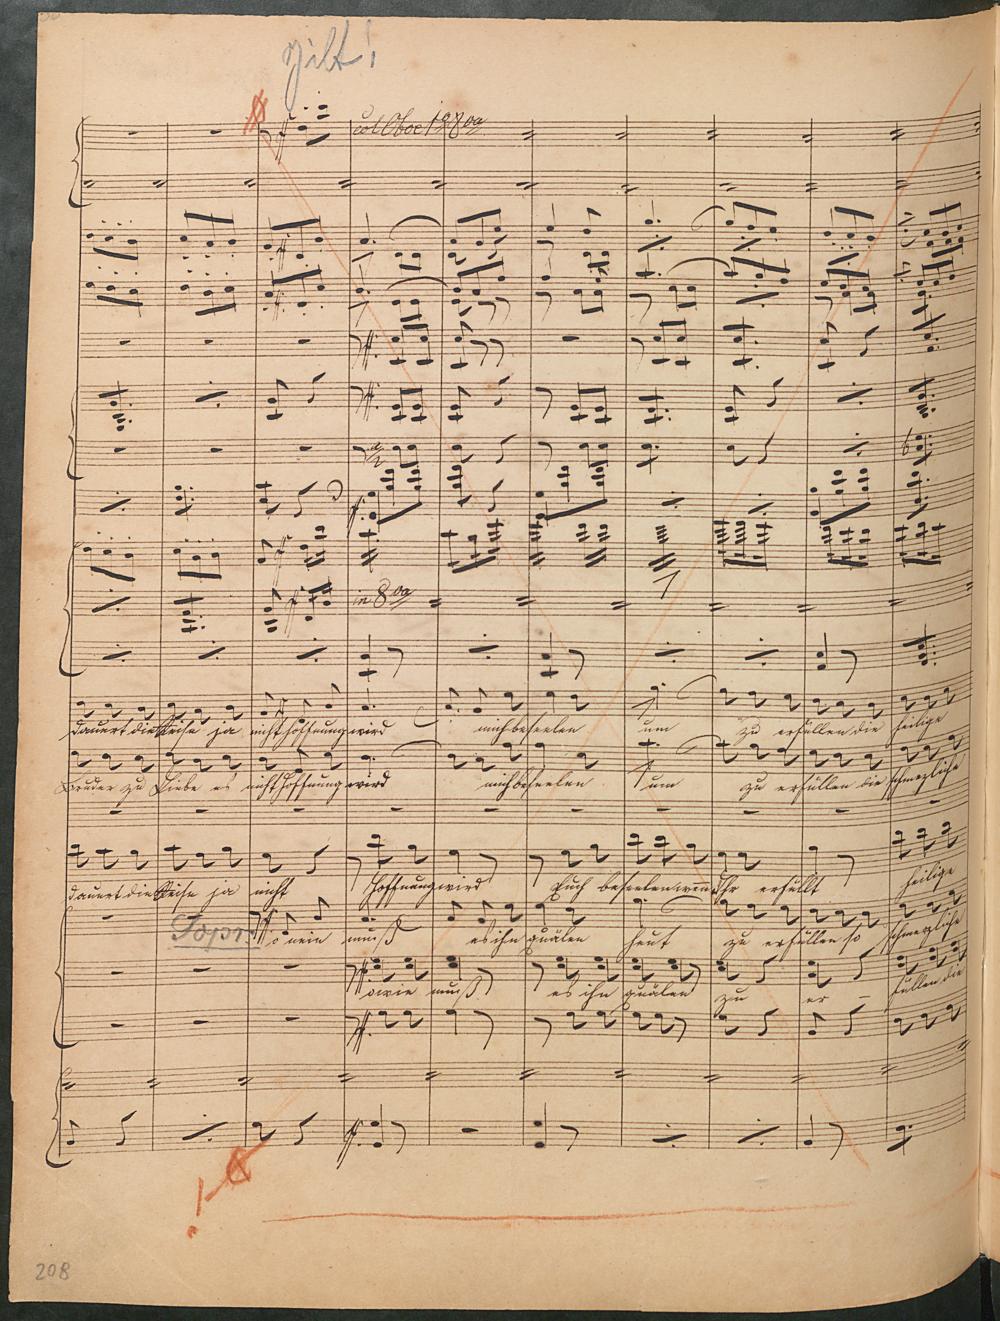 Gilt!
col Oboe 1º 8va
in 8va
dauert die Reise ja nicht Hoffnung wird mich beseelen um zu erfüllen die heilige
Bruder zu Liebe es nicht Hoffnung wird mich beseelen um zu erfüllen die schmerzliche
dauert die Reise ja nicht Hoffnung wird Euch beseelen wenn Ihr erfüllt heilige
Sopr:
o nein muß es ihn quälen heut zu erfüllen so schmerzliche
o wie muß es ihn quälen zu er - füllen die
208